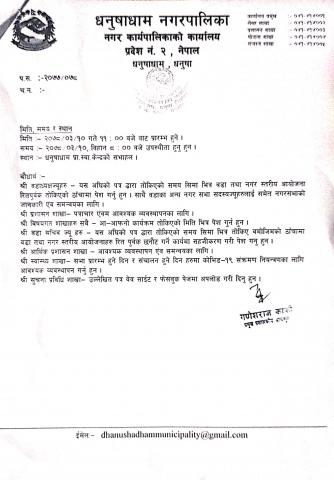 धनुषाधाम नगरपालिका
नगर कार्यपालिकाको कार्यालय
प्रदेश नं. २, नेपाल
धनुषाधाम, धनुषा
प.स. :-२०७७/०७८
च.न. :-
मिति, समय र स्थान
मिति :- २०७८/०३/१० गते ११ : ०० बजे बाट प्रारम्भ हुने ।
समय :- २०७८/०३/१०, बिहान ०८ : ०० बजे उपस्थीत हुनु हुन ।
स्थान :- धनुषाधाम प्रा.स्वा.केन्द्रको सभाहल ।
बोधार्थ :-
श्री वडाध्यक्षज्यूहरु - यस अघिको पत्र द्वारा तोकिएको समय सिमा भित्र वडा तथा नगर स्तरीय आयोजना
रितपुर्वक तोकिएको ढाँचामा पेश गर्नु हुन । साथै वडाका अन्य नगर सभा सदस्यज्यूहरुलाई समेत नगरसभाको
जानकारी एंव समन्वयका लागि ।
श्री प्रशासन शाखा- पत्राचार एंवम आवश्यक व्यवस्थापनका लागि ।
श्री बिषयगत शाखाहरु सबै - आ-आफनो कार्यक्रम तोकिएको मिति भित्र पेश गर्नु हुन ।
श्री वडा सचिव ज्यू हरु - यस अघिको पत्र द्वारा तोकिएको समय सिमा भित्र तोकिए बमोजिमको ढाँचामा
वडा तथा नगर स्तरीय आयोजनाहरु रित पुर्वक छनौट गर्ने कार्यमा सहजीकरण गरी पेश गर्नु हुन ।
श्री आर्थिक प्रशासन शाखा - आवश्यक व्यवस्थापन एंव समन्वयका लागि ।
श्री स्वास्थ्य शाखा- सभा प्रारम्भ हुने दिन र संचालन हुने दिन हरुमा कोभिड-१९ संक्रमण नियन्त्रणका लागि
आवश्यक व्यवस्थापन गर्नु हुन ।
श्री सुचना प्रविधि शाखा- उल्लेखित पत्र वेव साईट र फेसवुक पेजमा अपलोड गरी दिनु हुन ।
गणेशराज कार्की
ईमेल - dhanushadhammunicipality@gmail.com